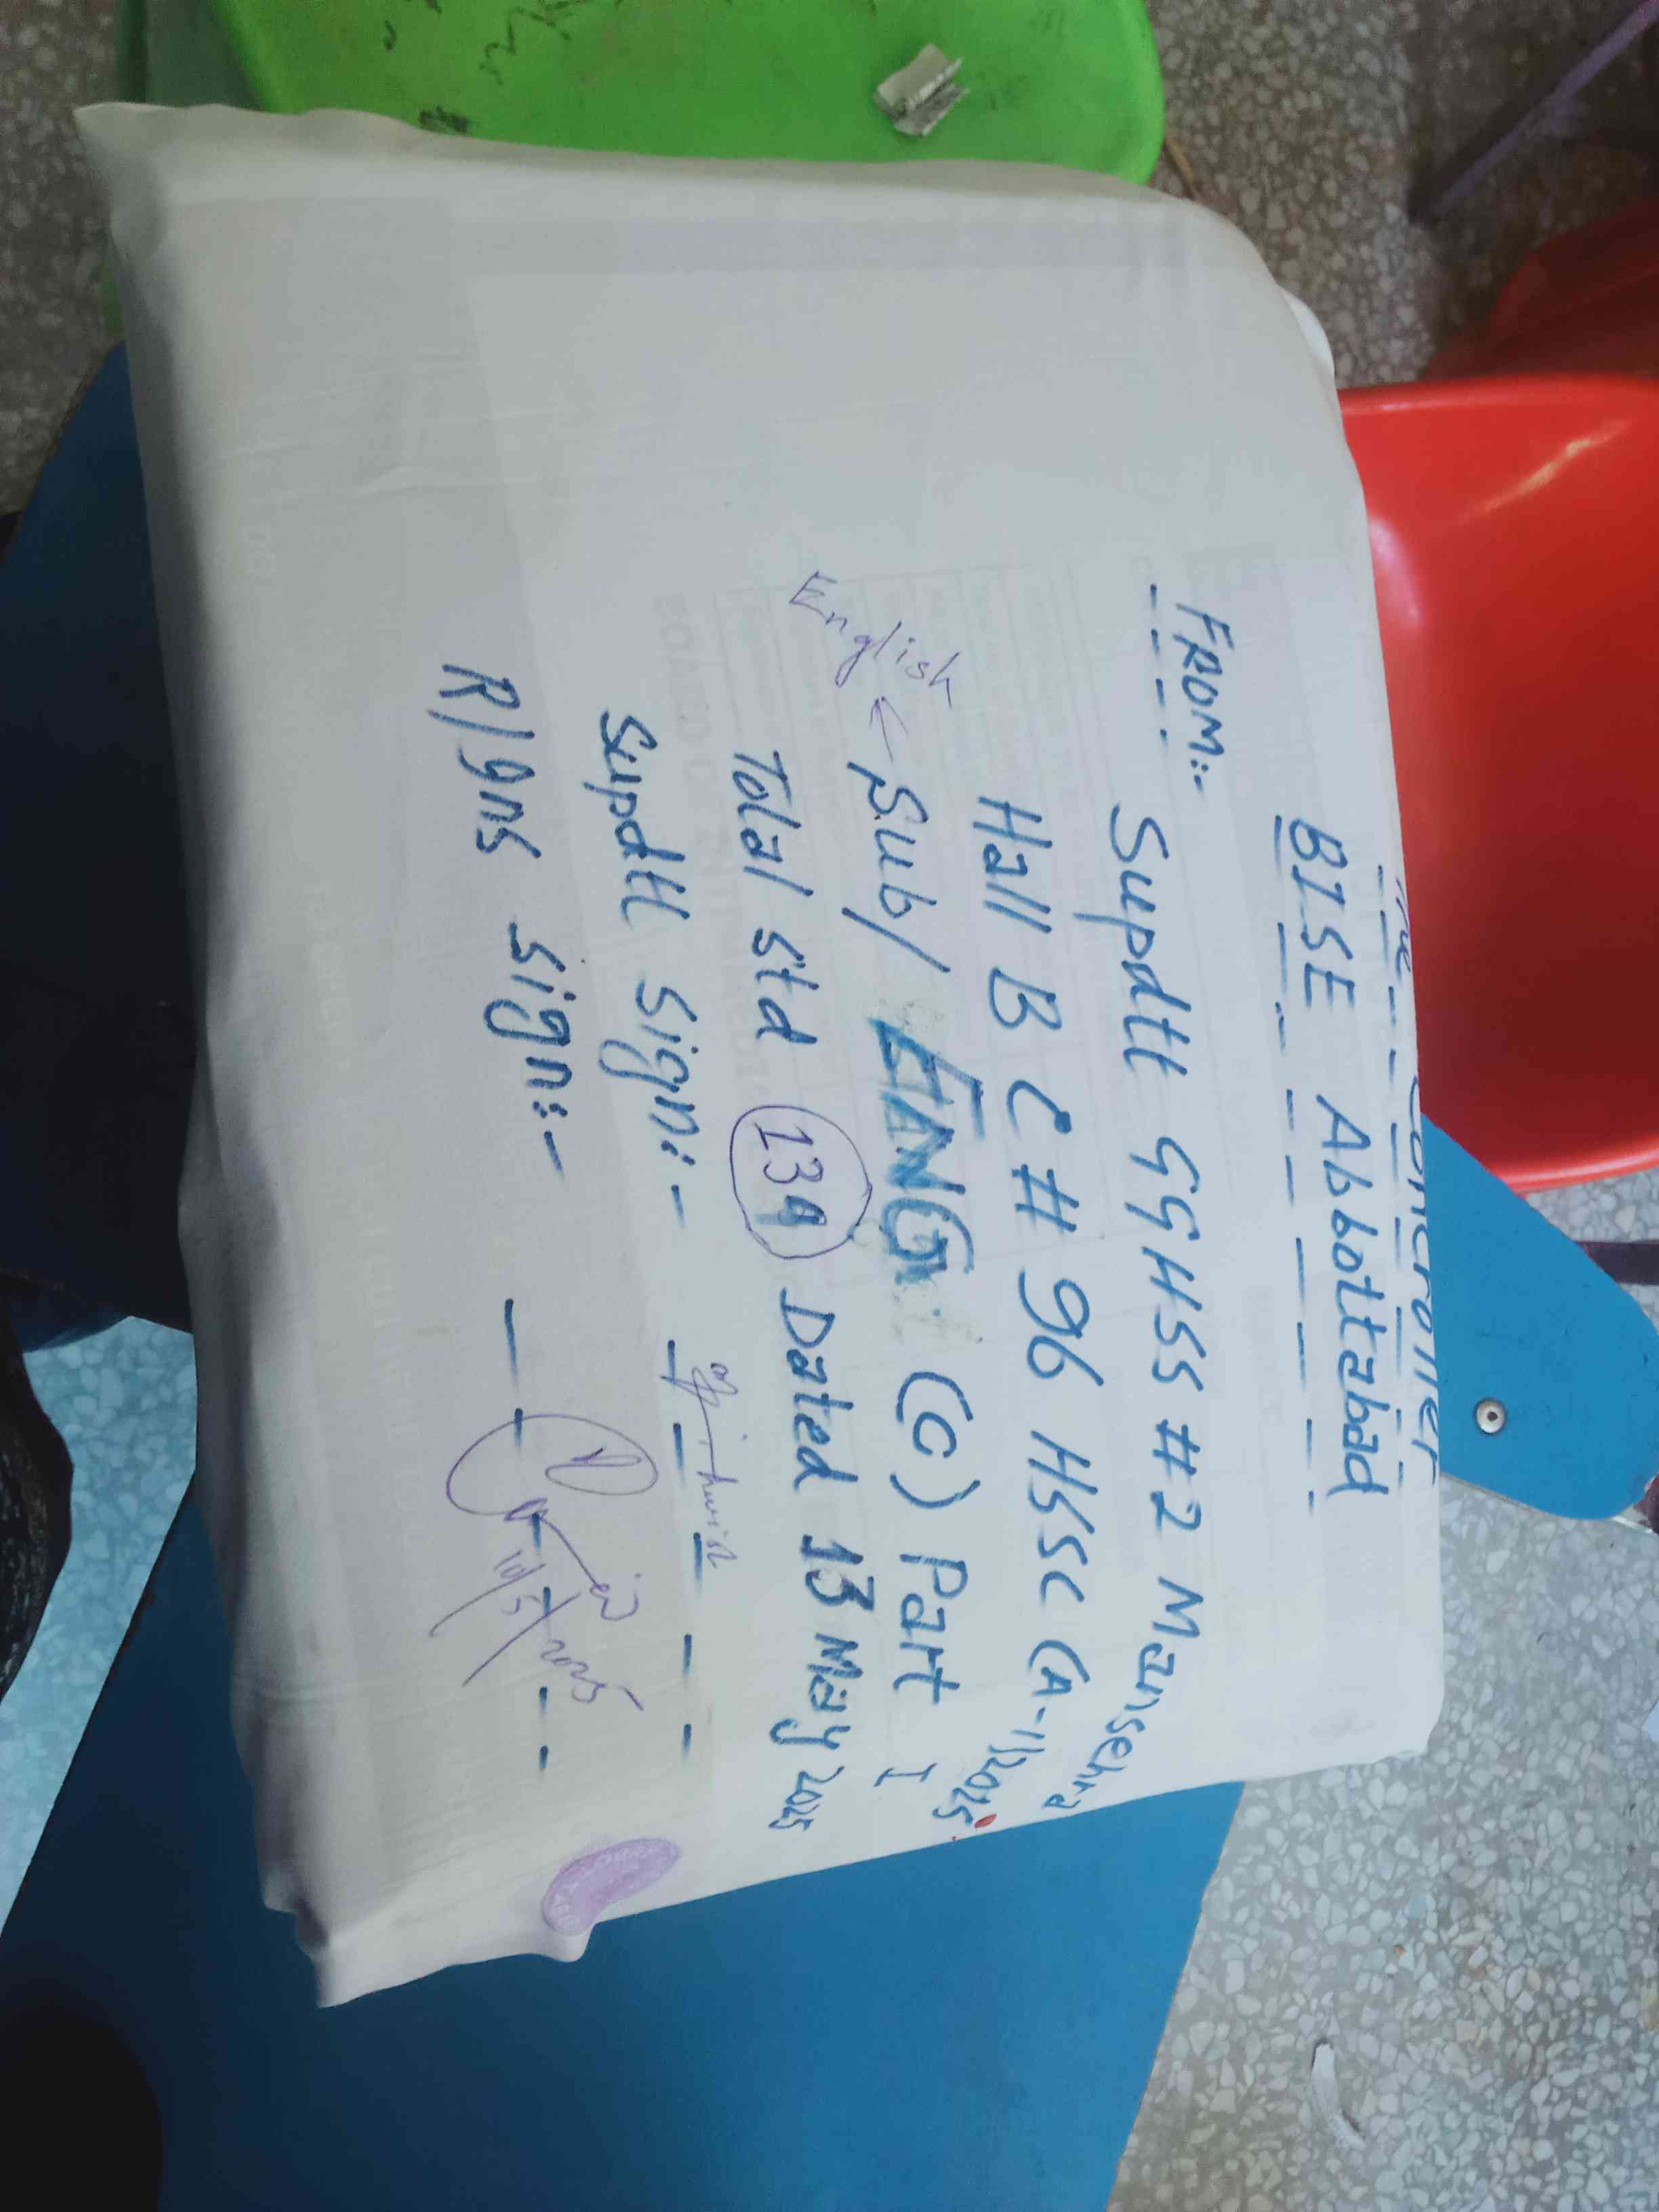 The Controller
BISE Abbottabad
FROM:-
Supdtt GGHSS #2 Mansehra
Hall B C # 96 HSSC (A-1)2025
English ← Sub/ ENG (C) Part I
Total std 139 Dated 13 May 2025
Supdtt Sign:-
R/gns Sign:-